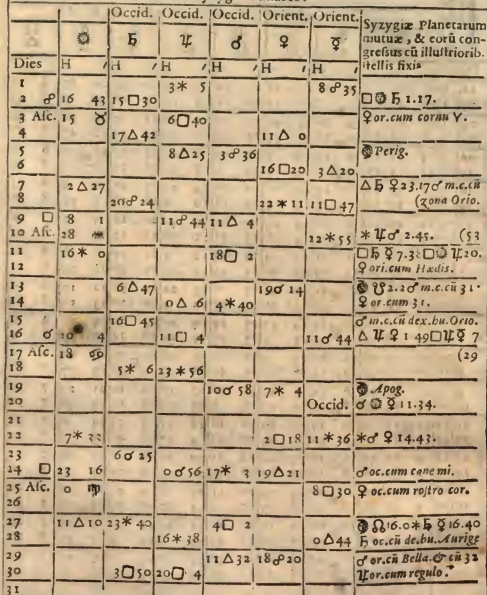 Occid. Occid. Occid. Orient. Orient. Syzygiæ Planetarum
☉ ♄ ♃ ♂ ♀ ☿ mutuæ, & eorũ con-
gressus cũ illustriorib.
Dies H ′ H ′ H ′ H ′ H ′ H ′ stellis fixis
1 3 ✶ 5 8 ☍ 35
2 ☍ 16 43 15 □ 30 □ ☉ ♄ 1.17.
3 Asc. 15 ♉ 6 □ 40 ♀ or. cum cornu ♈.
4 17 △ 42 11 △ 0
5 8 △ 25 3 ☍ 36 Perig.
6 16 □ 20 3 △ 20
7 2 △ 27 △ ♄ ♀ 23.17 ♂ m.c.cũ
8 20 ☍ 24 22 ✶ 11 11 □ 47 (zona Orio.
9 □ 8 1 11 ☍ 44 11 △ 4
10 Asc. 28 22 ✶ 55 ✶ ♃ ♂ 2.45. (53
11 16 ✶ 0 18 □ 2 □ ♄ ☿ 7.3: □ ☉ ♃ 20.
12 ♀ ori.cum Hædis.
13 6 △ 47 19 ☌ 14 ☋ 2.2 ♂ m.c.cũ 31.
14 0 △ 6 4 ✶ 40 ♀ or.cum 31.
15 16 □ 45 ♂ m.c.cũ dex.hu.Orio.
16 ☌ 10 4 11 □ 4 11 ☌ 44 △ ♃ ♀ 1 49 □ ♃ ☿ 7
17 Asc. 18 ♋ (29
18 5 ✶ 6 23 ✶ 56
19 10 ☌ 58 7 ✶ 4 Apog.
20 Occid. ☌ ☉ ☿ 11.34.
21
22 7 ✶ 33 2 □ 18 11 ✶ 36 ✶ ♂ ♀ 14.43.
23 6 ☌ 25
24 □ 23 16 0 ☌ 56 17 ✶ 3 19 △ 21 ♂ oc.cum cane mi.
25 Asc. 0 ♍ 8 □ 30 ♀ oc.cum rostro cor.
26
27 11 △ 10 23 ✶ 40 4 □ 2 ☊ 16.0 ✶ ♄ ☿ 16.40
28 16 ✶ 38 0 △ 44 ♄ oc.cũ de.hu.Aurige
29 11 △ 32 18 ☍ 20 ♂ or.cũ Bella. & cũ 32
30 3 □ 50 20 □ 4 ♃ or.cum regulo.
31